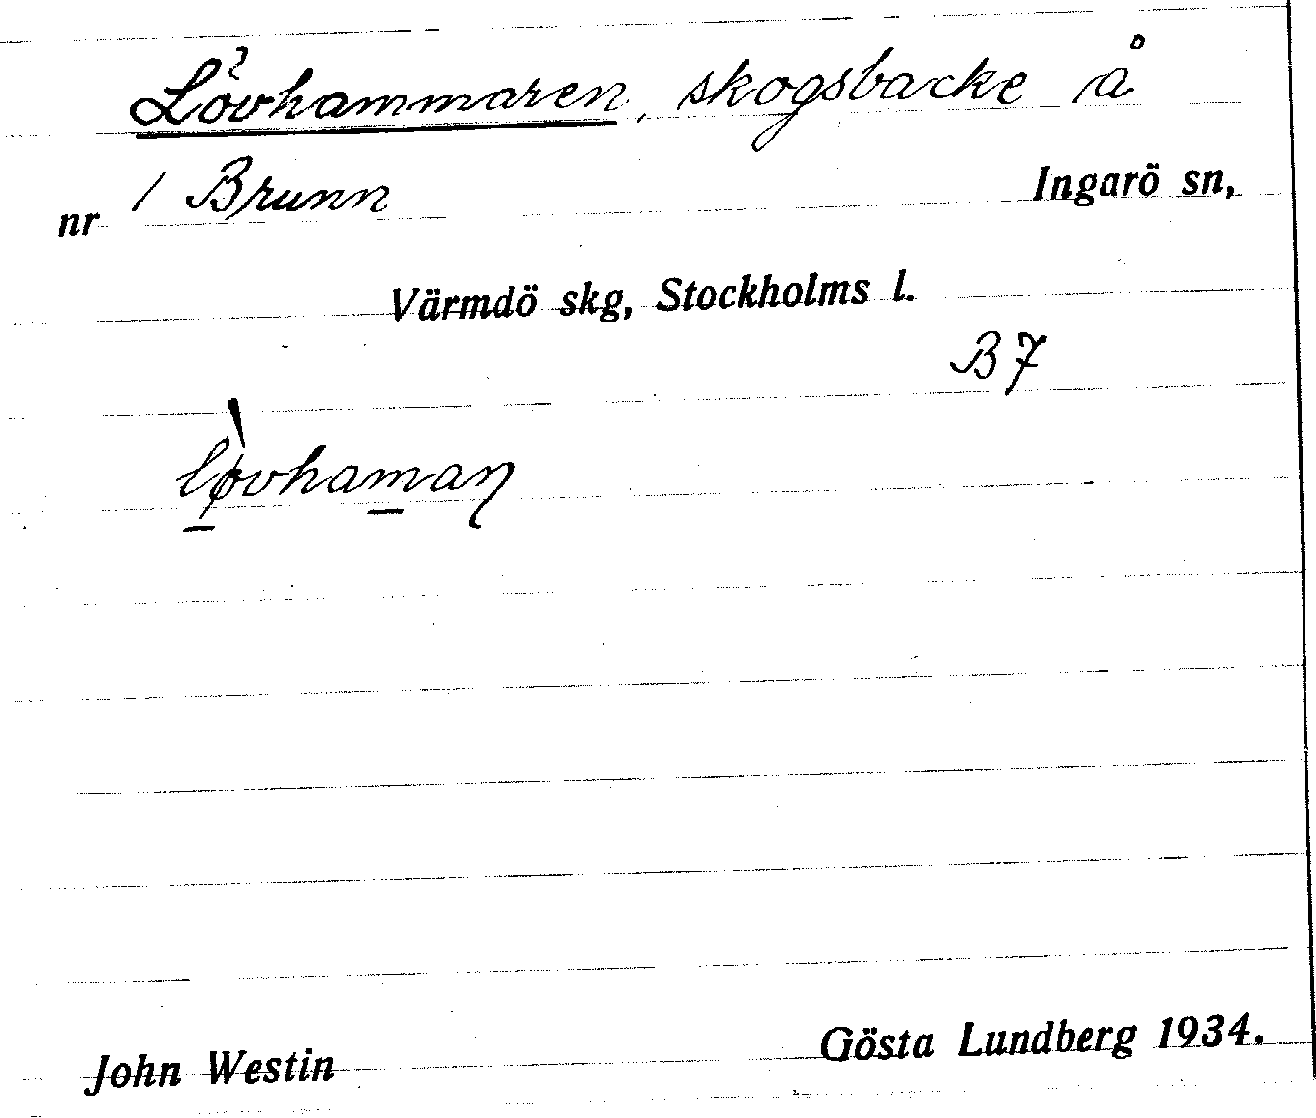 Lövhammaren, skogsbacke å
nr 1 Brunn Ingarö sn,
Värmdö skg, Stockholms l.
B7
lø̀vhamaɳ
John Westin Gösta Lundberg 1934.